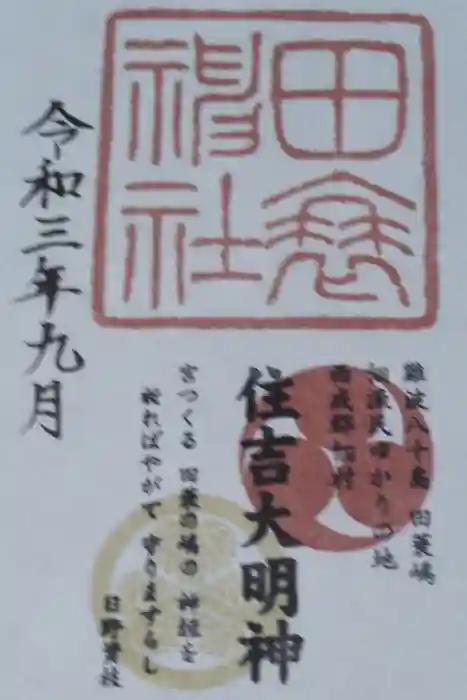 田蓑神社
難波八十島 田蓑嶋
源氏ゆかりの地
西成郡佃村
住吉大明神
宮つくる 田蓑の嶋の 神垣を
祈ればやがて 守りますらし
日野資枝
令和三年九月